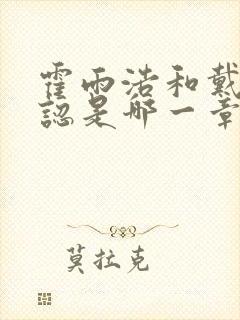 霍雨浩和戴
認是哪一章
莫拉克